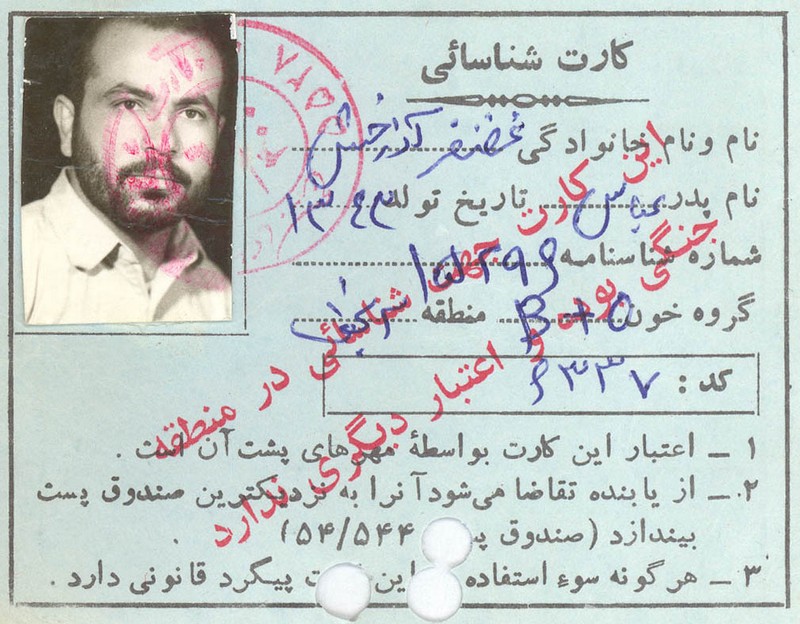 کارت شناسائی
نام و نام خانوادگی غضنفر
نام پدر عباس تاریخ تولد ۱۳۴۳
شماره شناسنامه
گروه خون منطقه
کد : ۶۳۳۷
۱ ــ اعتبار این کارت بواسطهٔ مهرهای پشت آن است .
۲ ــ از یابنده تقاضا می‌شود آنرا به نزدیکترین صندوق پست
بیندازد (صندوق ۵۴/۵۴۴) .
۳ ــ هرگونه سوء استفاده این پیگرد قانونی دارد .
این کارت جهت شناسائی در منطقه
جنگی بوده و اعتبار دیگری ندارد